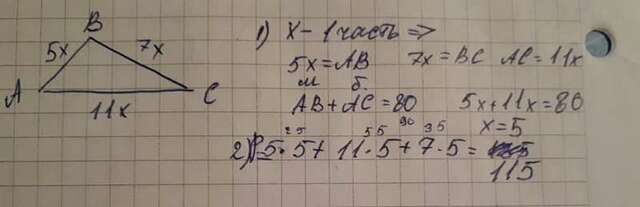 B
5x 7x
A C
11x
1) x - 1 часть =>
5x = AB 7x = BC AC = 11x
м б
AB + AC = 80 5x + 11x = 80
x = 5
25 55 90 35
2) P 5 · 5 + 11 · 5 + 7 · 5 =
115